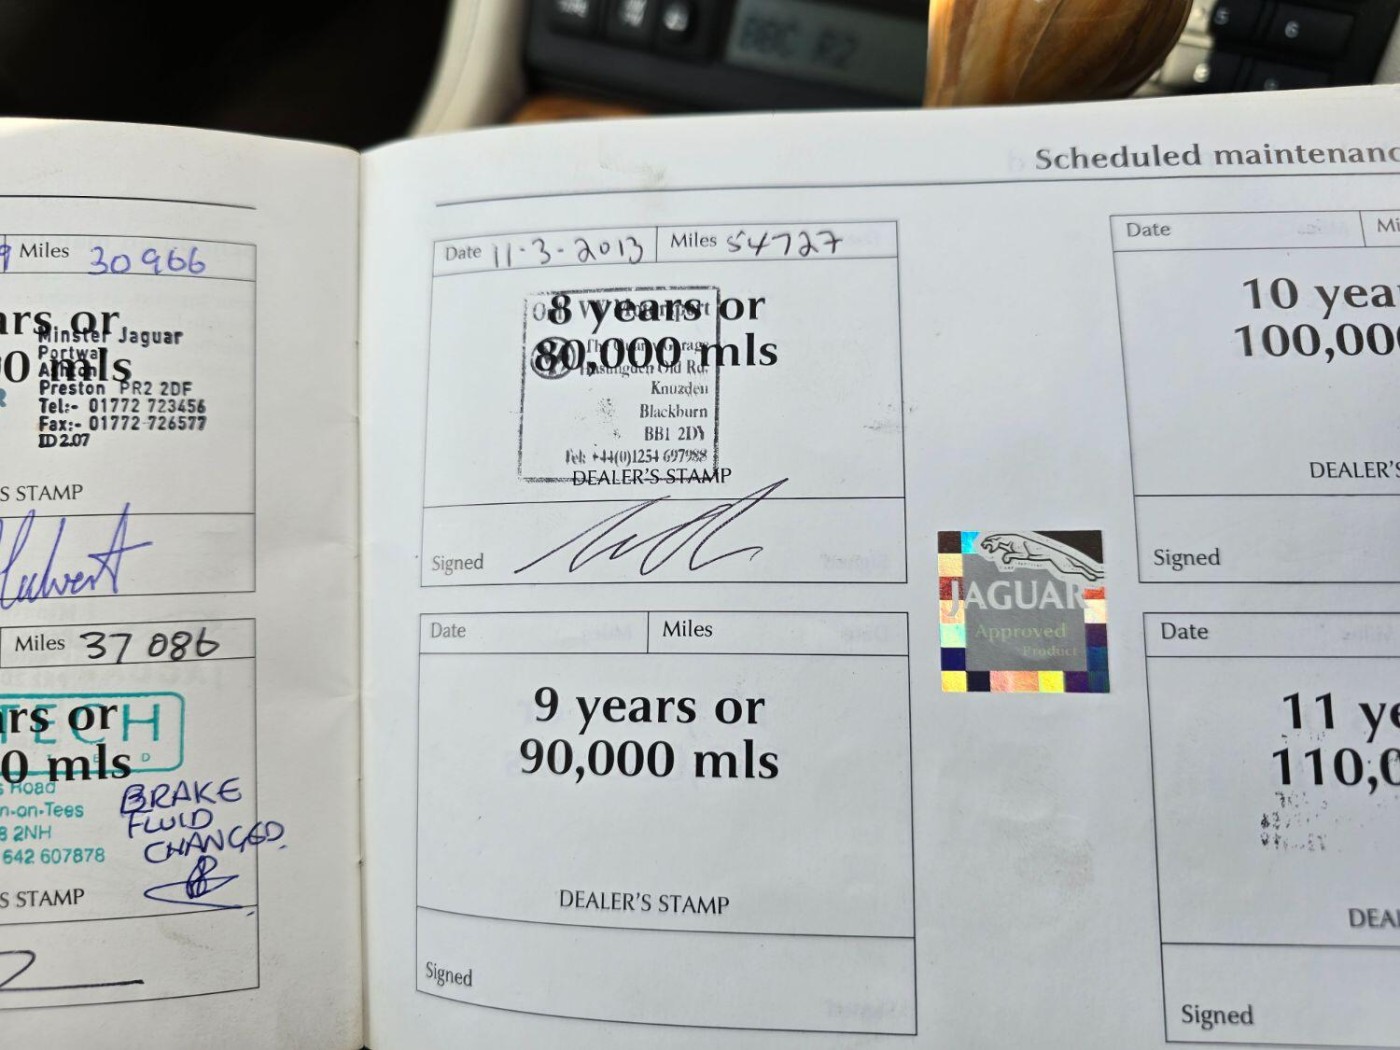 BBC R2
5
6
Miles 30966
ars or
0 mls
Minster Jaguar
Portway
Ashton
Preston PR2 2DF
Tel:- 01772 723456
Fax:- 01772 726577
ID2.07
S STAMP
Miles 37 086
TECH
ars or
0 mls
s Road
n-on-Tees
8 2NH
642 607878
BRAKE
FLUID
CHANGED.
S STAMP
Scheduled maintenanc
Date 11-3-2013 Miles 54727
8 years or
80,000 mls
Old Rd.
Knuzden
Blackburn
BB1 2DY
Tel: +44(0)1254 697988
DEALER'S STAMP
Signed
Date Miles
9 years or
90,000 mls
DEALER'S STAMP
Signed
JAGUAR
Approved
Product
Date Mi
10 yea
100,00
DEALER'S
Signed
Date
11 ye
110,0
DEAL
Signed